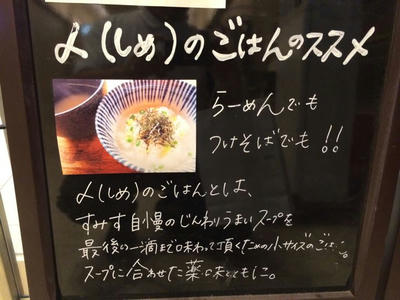 〆(しめ)のごはんのススメ
らーめんでも
つけそばでも!!
〆(しめ)のごはんとは、
すみす自慢のじんわりうまいスープを
最後の一滴まで味わって頂くための小サイズのごはん。
スープに合わせた薬味とともに。